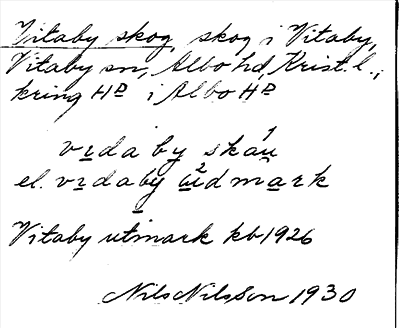 Vitaby skog, skog i Vitaby,
Vitaby sn, Albo hd, Krist. l.,
kring HP i Albo HP
vıdaby skáu
el. vıdaby údmark
Vitaby utmark kb 1926
Nils Nilsson 1930